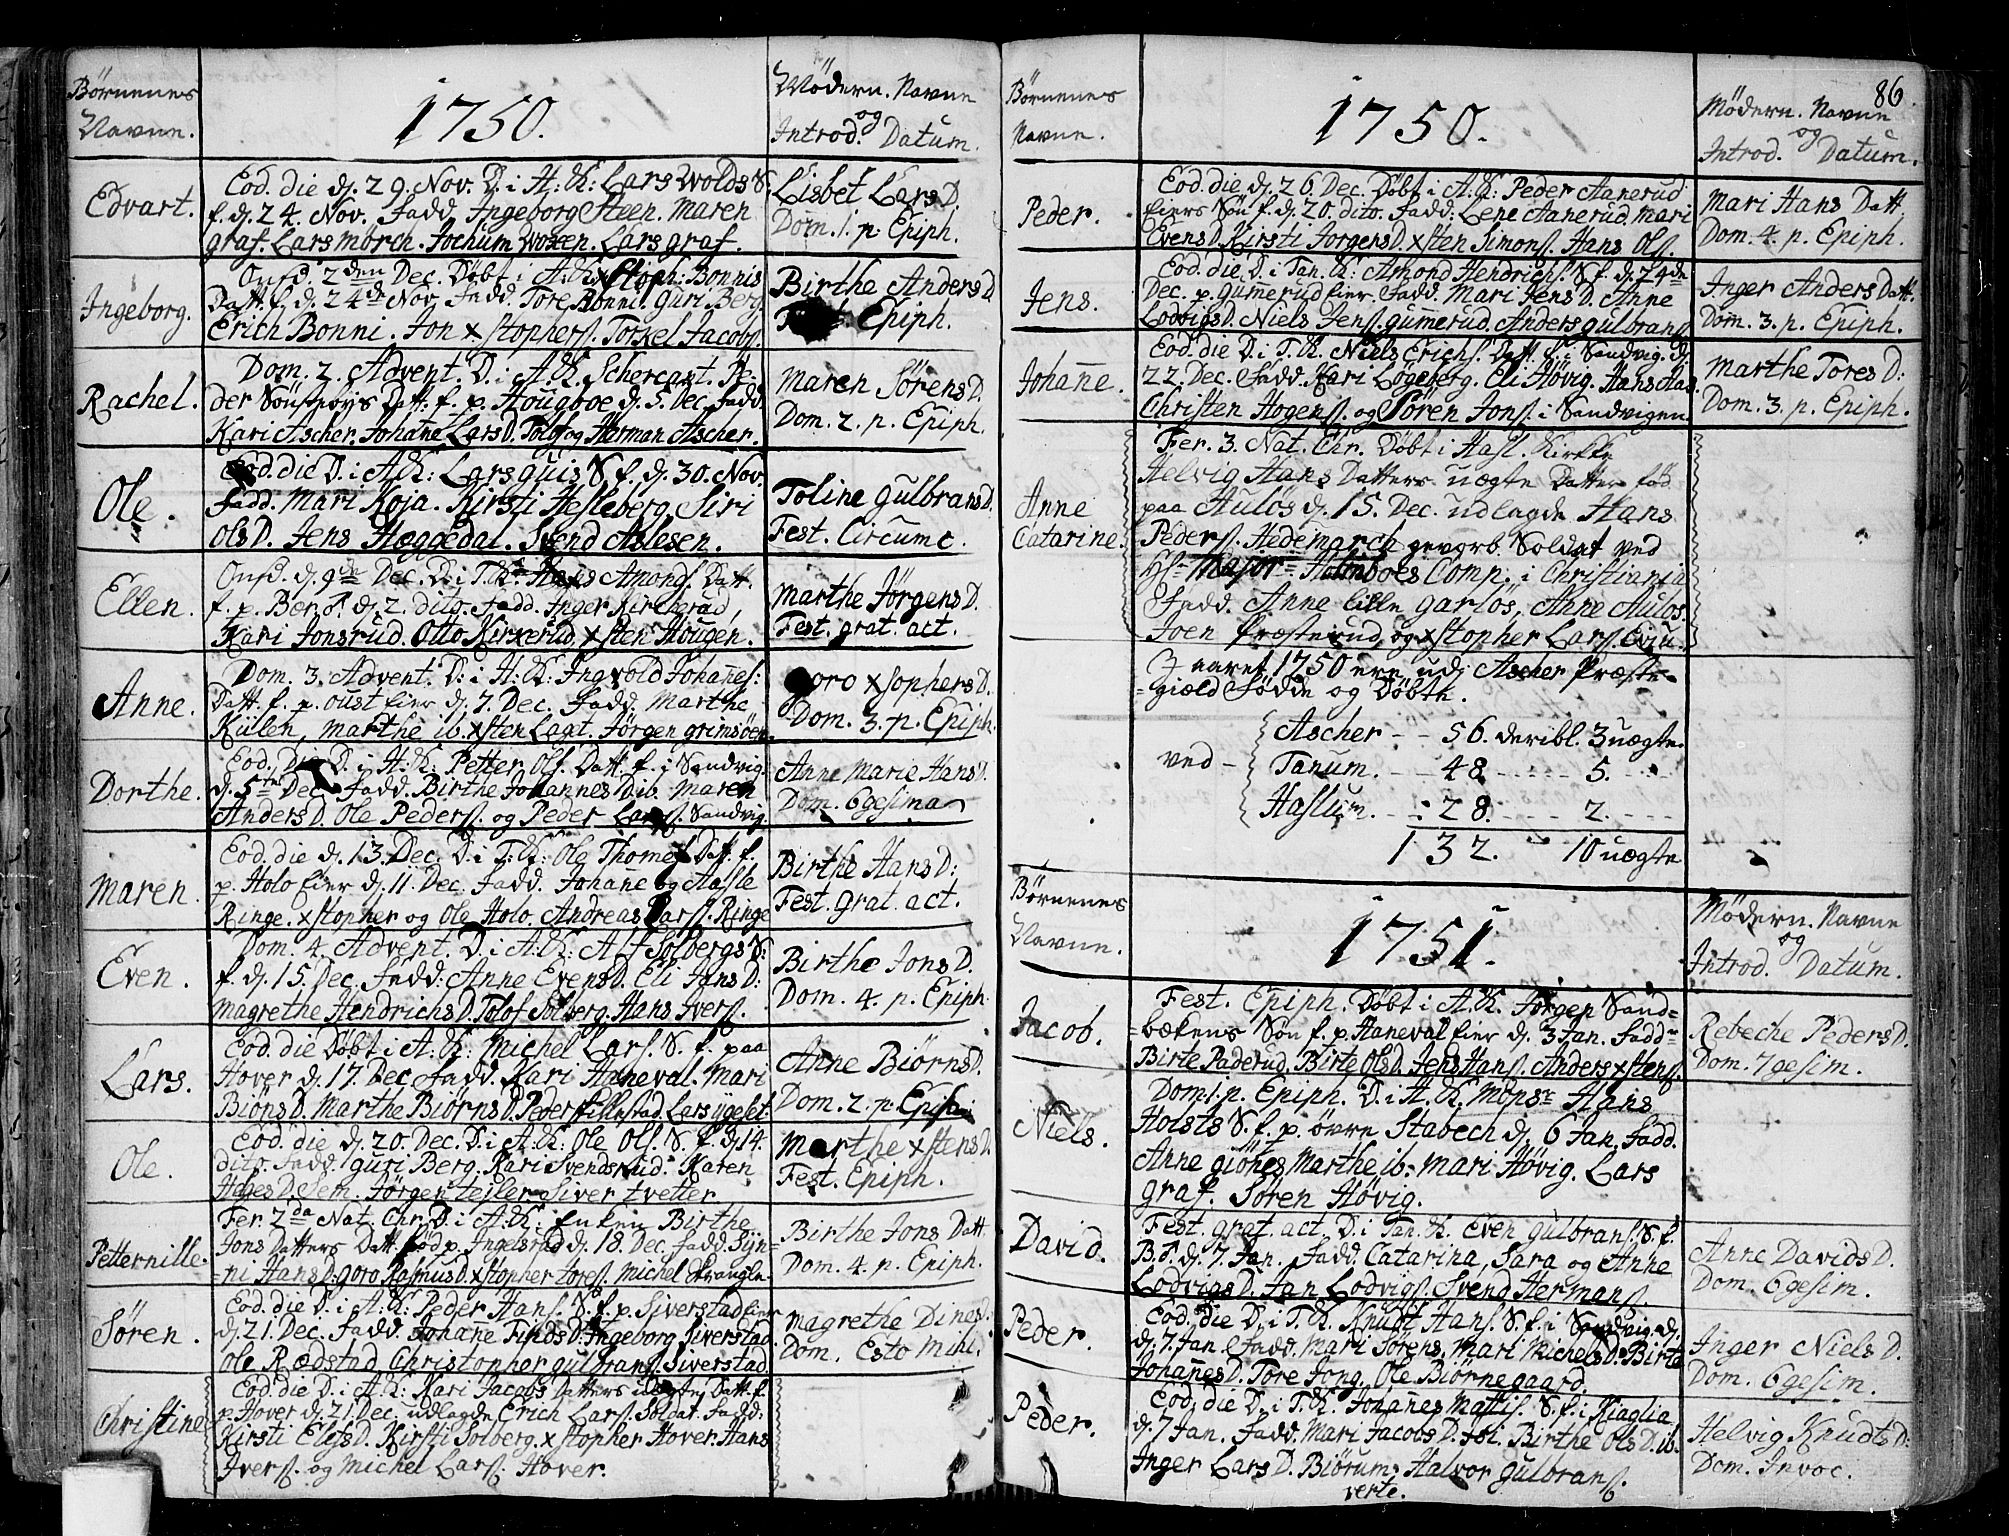 Börnenes
Navne.
1750.
Mödern. Navne
og
Introd. Datum.
Edvart.
Eod. die dj. 29. Nov. D. i H: K: Lars Wolds S.
f. dj. 24. Nov. Fadd. Ingeborg Steen. Maren
graf. Lars Mörch. Jochum Woxen. Lars graf.
Lisbet Lars D.
Dom. 1. p. Epiph.
Ingeborg.
Onsd. 2den Dec. Döbt i A: K: xstoph: Bonnis
Datt. f. dj. 24de Nov. Fadd. Tore Bonni. Guri Berg.
Erich Bonni. Jon xstophers. Torkel Jacobs.
Birthe Anders D.
Epiph.
Rachel.
Dom. 2. Advent. D. i A. K. Schersant. Pe-
der Datt. f. p. Hougboe dj. 5. Dec. Fadd.
Kari Ascher. Johanne Lars D. Tolof og Herman Ascher.
Maren Sörens D.
Dom. 2. p. Epiph.
Ole.
Eod. die D. i A: K: Lars quis S. f. dj. 30. Nov.
Fadd. Mari Koja. Kirsti Hesleberg. Siri
Ols D. Jens Hoeggedal. Svend Aslesen.
Toline Gulbrans D.
Fest. Circumc.
Ellen.
Onsd. dj. 9de Dec. D. i T. K: Hans Amonds. Datt.
f. p. dj. 2. dito. Fadd. Inger Kirkerud,
Kari Jonsrud. Otto Kirkerud, xsten Hougen.
Marthe Jörgens D.
Fest. grat. act.
Anne.
Dom. 3. Advent. D. i H: K: Ingvold Johannes:
Datt. f. p. Oust Eier dj. 7. Dec. Fadd. Marthe
Külen, Marthe ib. xsten Laget. Jörgen Grimsöen.
Goro xsophers D.
Dom. 3. p. Epiph.
Dorthe.
Eod. Die D. i H: K: Petter Ols. Datt f. i Sandvig.
dj. 5te Dec. Fadd. Birthe Johannes D. ib. Maren
Anders D. Ole Peders. og Peder Lars. Sandvig.
Anne Marie Hans D.
Dom. 6gesima
Maren.
Eod. die dj. 13. Dec. D. i T. K: Ole Thomes. Datt. f.
p. Holo Eier dj. 11. Dec. Fadd. Johanne og Aasle
Ringe. xstopher og Ole Holo. Andreas Lars. Ringe
Birthe Hans D:
Fest. grat. act.
Even.
Dom. 4. Advent. D. i A: K: Alf Solbergs S:
f. dj. 15. Dec. Fadd: Anne Evens D. Eli Jens D:
Magrethe Hendrichs D. Tolof Solberg. Hans Ivers.
Birthe Jons D.
Dom. 4. p. Epiph.
Lars.
Eod. die Döbt i A. K: Michel Lars. S. f. paa
Hover dj. 17. Dec. Fadd. Kari Haneval. Mari
Biöns D. Marthe Biörns D. Peder Fillestad. Lars ygeset.
Anne Biörns D.
Dom. 2. p. Epiph
Ole.
Eod. die dj. 20. Dec. D. i A: K: Ole Ols. S. f. dj. 14.
dito. Fadd. Guri Berg. Kari Svendsrud. Karen
D. Sem. Jörgen tejler. Siver tvetter.
Marthe xstens D.
Fest. Epiph.
Petternille.
Fer. 2da Nat. Chr. D. i A: K: Enken Birthe
Jons Datters Datt. föd p. Ingelsrud dj. 18. Dec. Fadd. Syn-
-ni Hans D. Goro Rasmus D. xstopher Tores. Michel Vrangle
Birthe Jons Datt
Dom. 4. p. Epiph.
Sören.
Eod. die D. i A: K: Peder Hans. S. f. p. Siverstad Eier
dj. 21. Dec. Fadd. Johanne Finds D. Ingeborg Siverstad
Ole Rœdstad. Christopher Gulbrans. Siverstad
Magrethe Dines D:
Dom. Esto Mihi.
Christine
Eod. die D. i A: K: Kari Jacobs Datters uægte Datt. f.
p. Hover dj. 21. Dec. udlagde Erich Lars. Soldat. Fadd:
Kirsti Elefs D. Kirsti Solberg. xstopher Hover. Hans
Ivers. og Michel Lars. Hover.
86.
Börnenes
Navne.
1750.
Mödern. Navne
og
Introd. Datum.
Peder.
Eod. die dj. 26. Dec. Döbt i A: K: Peder Aanerud
Eiers Sön f. dj. 20. dito. Fadd: Lene Aanerud. Mari
Evens D. Kirsti Jorgens D. xsten Simons. Hans Ols.
Mari Hans Datt.
Dom. 4. p. Epiph.
Jens.
Eod. die D. i Tan. K: Amond Hendrichs. S. f. dj. 24de
Dec. p. Gumerud Eier. Fadd. Mari Jens D. Anne
Lodvigs D. Niels Jens. Gumerud. Anders Gulbrans
Inger Anders Datt.
Dom. 3. p. Epiph.
Johanne.
Eod. die D. i T. K. Niels Erichs. Datt. f. i Sandvig. dj.
22. Dec. Fadd. Kari Lögeberg. Eli Hövig. Hans
Christen Hogens. og Sören Jons. i Sandvigen
Marthe Tores D:
Dom. 3. p. Epiph.
Anne
Catarine.
Fer. 3. Nat. Chr. Döbt i Hasl. Kirke
Helvig Hans Datters uægte Datter föd
paa Aulös dj. 15. Dec. udlagde Hans
Peders. Hedemarch gevorb. Soldat ved
Hr Major Holmboes Comp. i Christiania
Fadd. Anne lille Garlös, Anne Aulös.
Joen Præsterud, og xstopher Lars. Evju.
I aaret 1750 ere udj Ascher Præste-
-giæld Födde og Döbte.
ved -
Ascher - - 56. deribl. 3 uægte.
Tanum. - - 48 - - - - 5. - - -
Haslum. - - : 28. - - - - 2. - - -
132. " 10 uægte
Börnenes
Navne.
1751.
Mödern. Navne
og
Introd. Datum.
Jacob.
Fest. Epiph. Döbt i A: K. Jörgen Sand-
-bækens Sön f. p. Haneval Eier dj. 3 Jan. Fadd
Birte Paderud, Birte Ols D. Jens Hans. Anders xstens.
Rebeche Peders D.
Dom. 7gesim.
Niels.
Dom. 1. p. Epiph. D. i H. K. Monsr Hans
Holsts S. f. p. övre Stabech dj. 6 Jan. Fadd.
Anne giönes Marthe ib: Mari Hövig. Lars
graf. Sören Hövig.
David.
Fest. grat. act. D. i Tan. K. Even Gulbrans. S. f.
dj. 7. Jan. Fadd. Catarina, Sara og Anne
Lodvigs D. Jan Lodvigs. Svend Hermans.
Anne Davids D.
Dom. 6gesim.
Peder.
Eod. die D. i T. K. Knudt Hans. S. f. i Sandvig. dj.
dj. 7 Jan. Fadd. Mari Sörens, Mari Michels D. Birta
Johannes D. Tore Jong. Ole Biörnegaard.
Inger Niels D.
Dom. 6gesim.
Peder.
Eod. die D. i T. K. Johannes Mattis. S. f. i Kiaglia
dj. 7 Jan. Fadd. Mari Jacobs D. Birthe Ols D. ib.
Inger Lars D. Biörum, Halvor Gulbrans.
Helvig Knudts D:
Dom. Invoc.
verte.